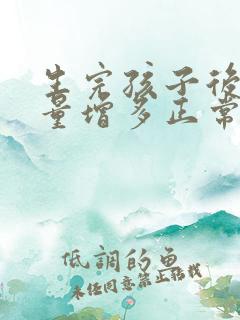 生完孩子後
量增多正常
低調的魚
未任同意禁止轉載